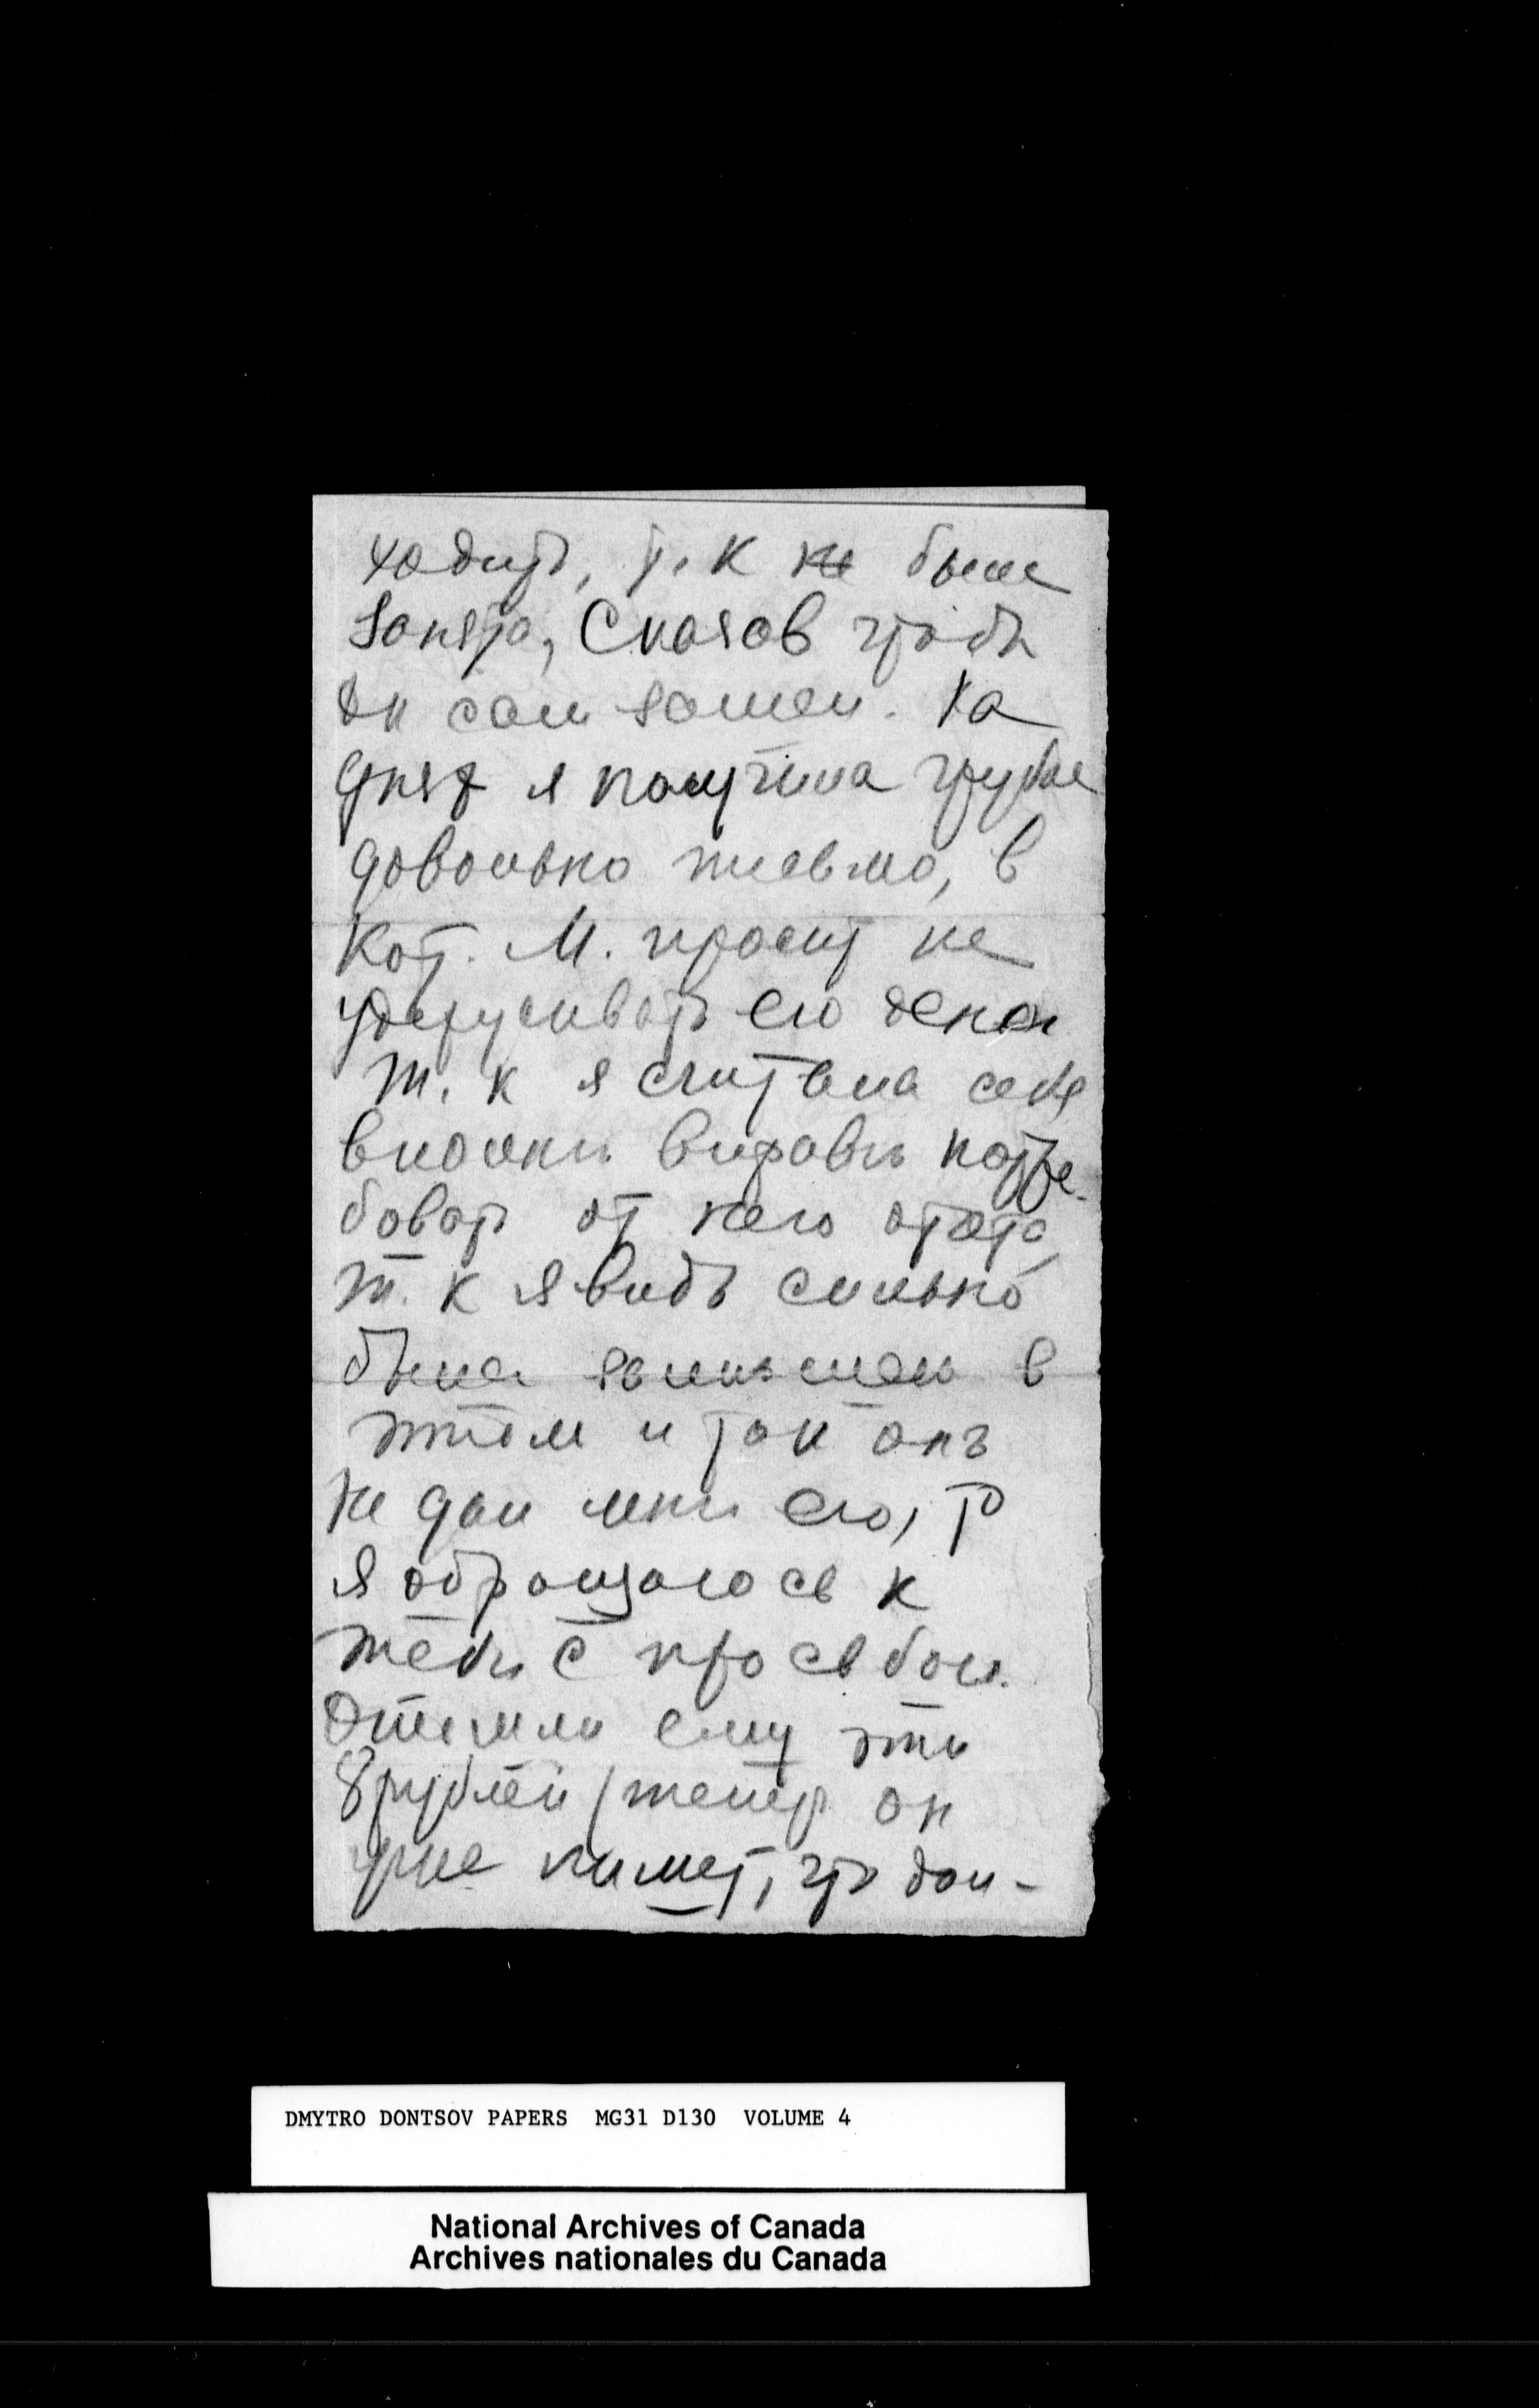 ходить, т. к была
занята, сказав чтобы
он сам зашел. На
днях я получила грубое
довольно письмо, в
кот. М. просит не
удерживать его денег
т. к я считала себя
вполне вправе потре-
бовать от него отчета,
т. к я видь сильно
была в
этом и так онъ
не дал мне его, то
я обращаюсь к
тебе с просьбой.
Отошли ему эти
8 рублей (теперь он
уже пишет, что дол-
DMYTRO DONTSOV PAPERS MG31 D130 VOLUME 4
National Archives of Canada
Archives nationales du Canada